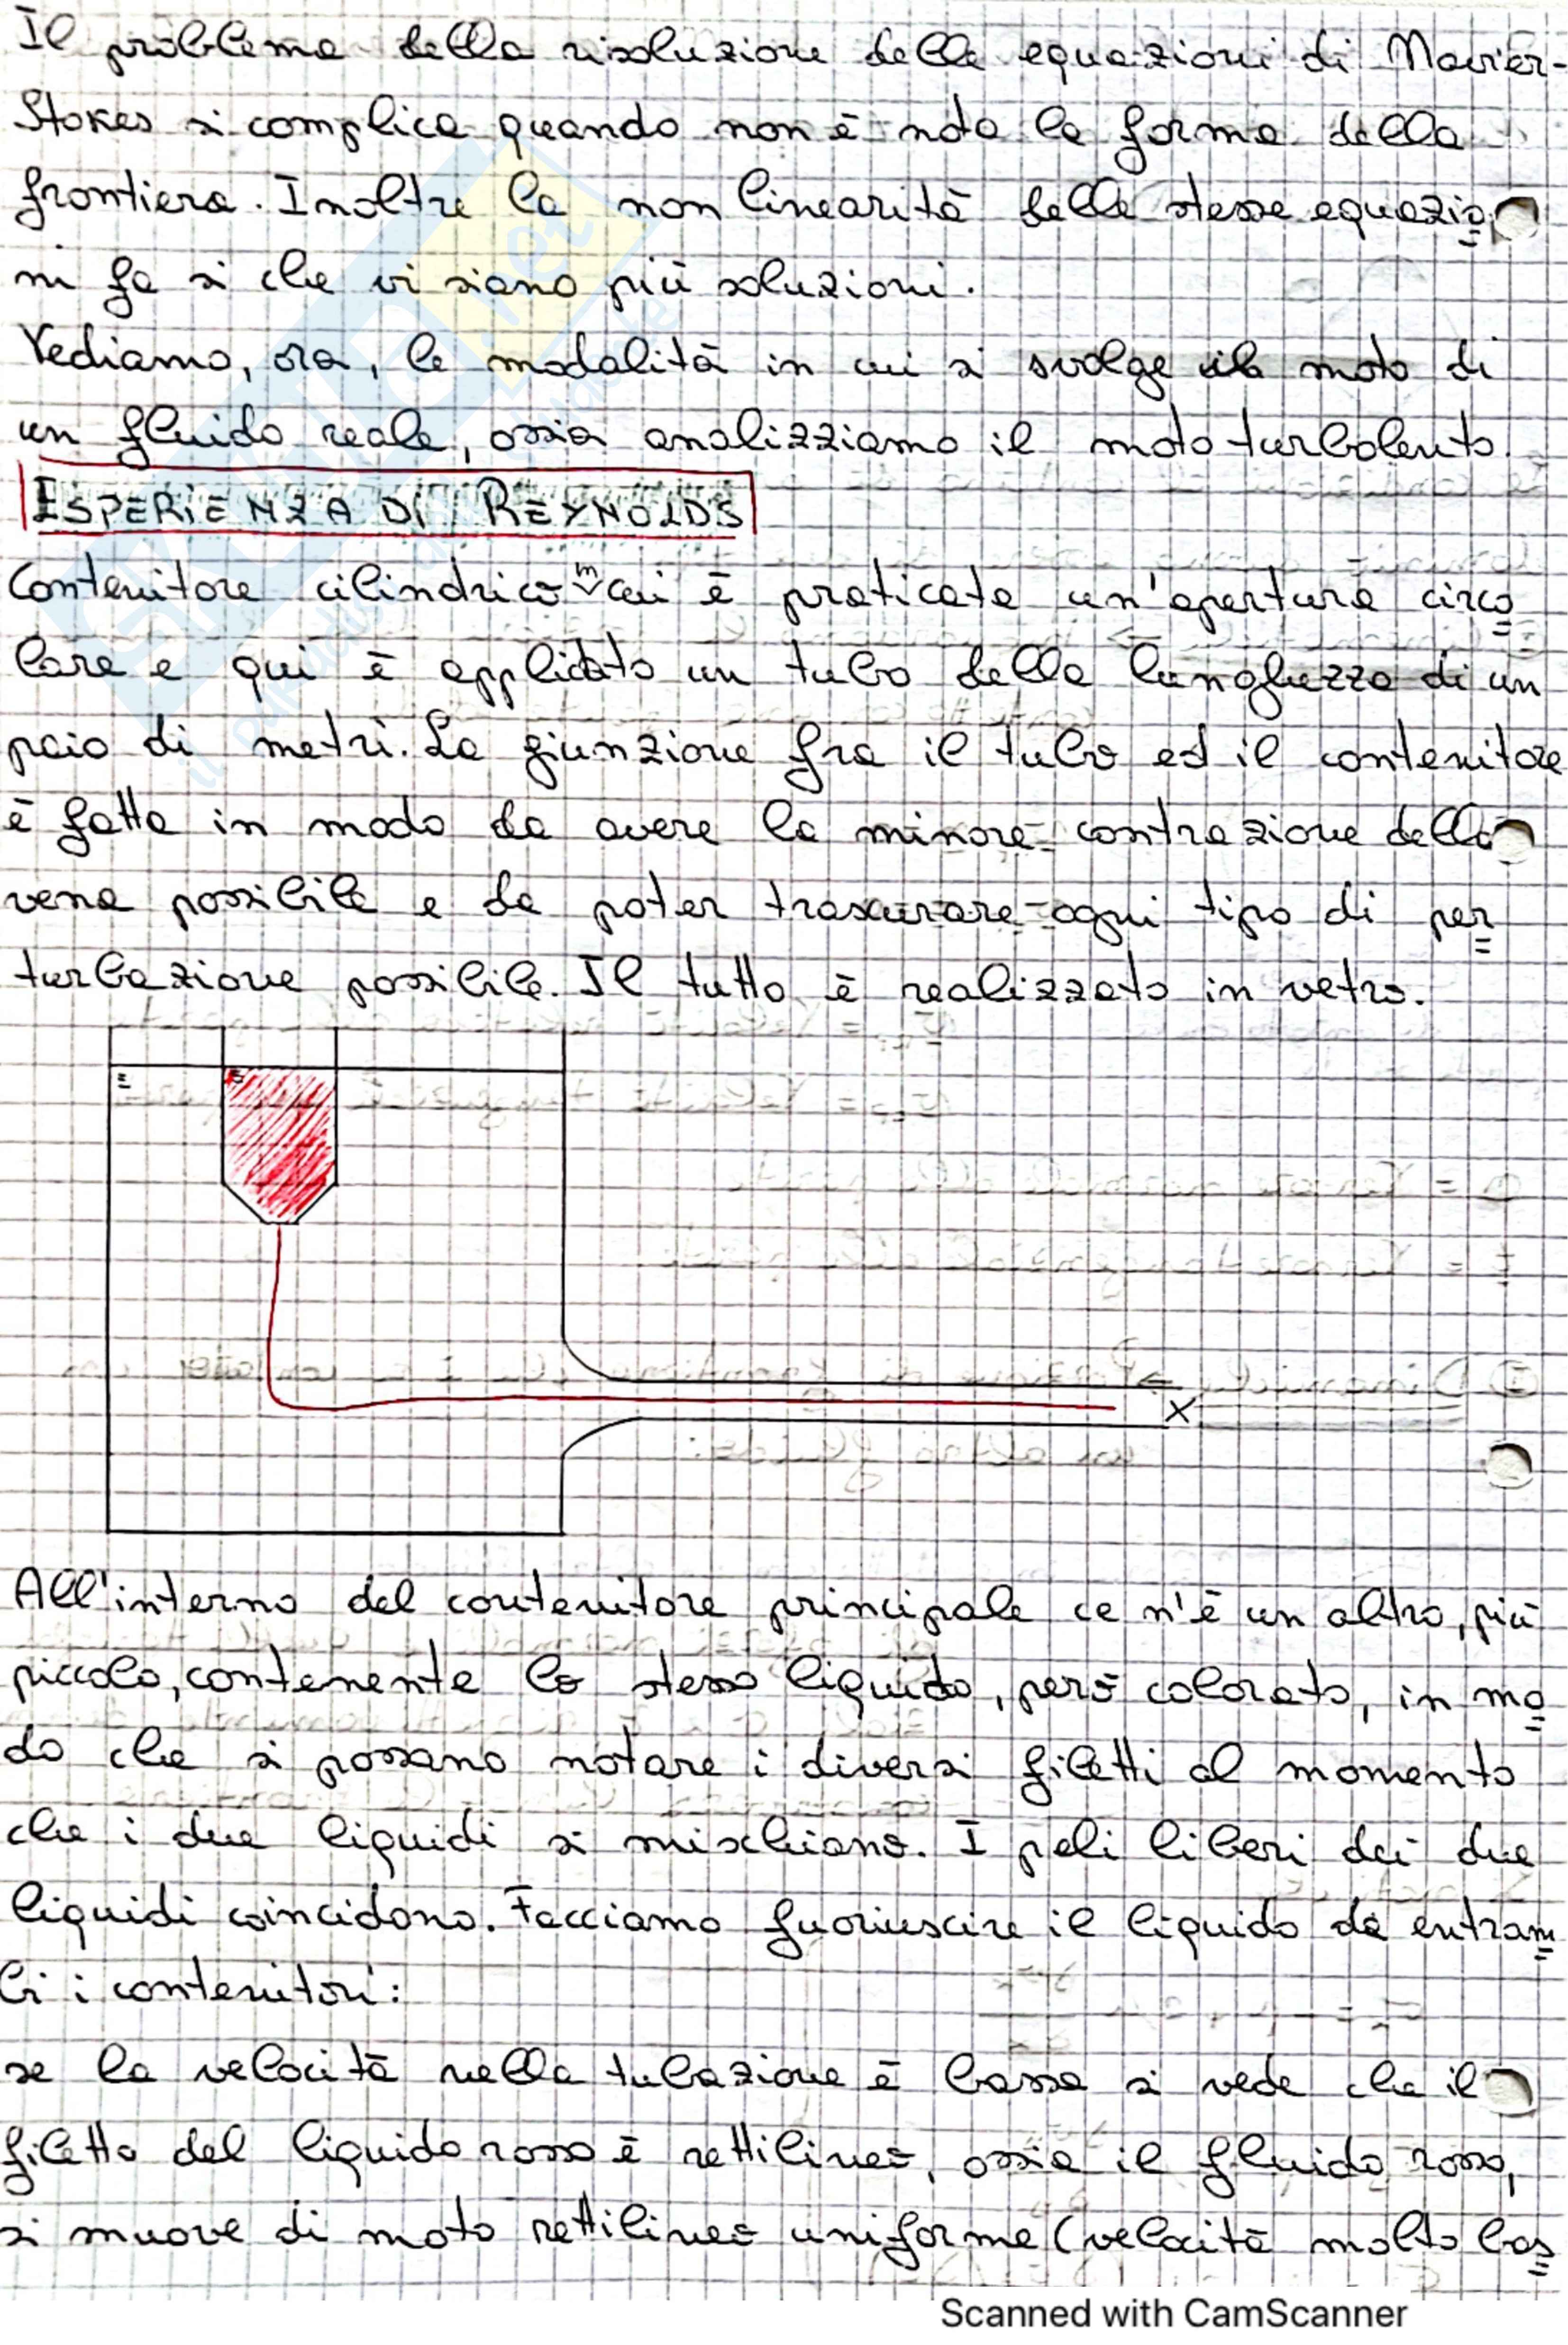 Il problema della risoluzione delle equazioni di Navier-
Stokes si complica quando non è nota la forma della
frontiera. Inoltre la non linearità delle stesse equazio
ni fa sì che vi siano più soluzioni.
Vediamo, ora, le modalità in cui si svolge il moto di
un fluido reale, ossia analizziamo il moto turbolento.
ESPERIENZA DI REYNOLDS
Contenitore cilindrico in cui è praticata un'apertura circo
lare e qui è applicato un tubo della lunghezza di un
paio di metri. La giunzione fra il tubo ed il contenitore
è fatta in modo da avere la minore contrazione della
vena possibile e da poter trascurare ogni tipo di per
turbazione possibile. Il tutto è realizzato in vetro.
X
All'interno del contenitore principale ce n'è un altro, più
piccolo, contenente lo stesso liquido, però colorato, in mo
do che si possano notare i diversi filetti al momento
che i due liquidi si mischiano. I peli liberi dei due
liquidi coincidono. Facciamo fuoriuscire il liquido da entram
bi i contenitori:
se la velocità nella tubazione è bassa si vede che il
filetto del liquido rosso è rettilineo, ossia il fluido rosso,
si muove di moto rettilineo uniforme (velocità molto bas
Scanned with CamScanner